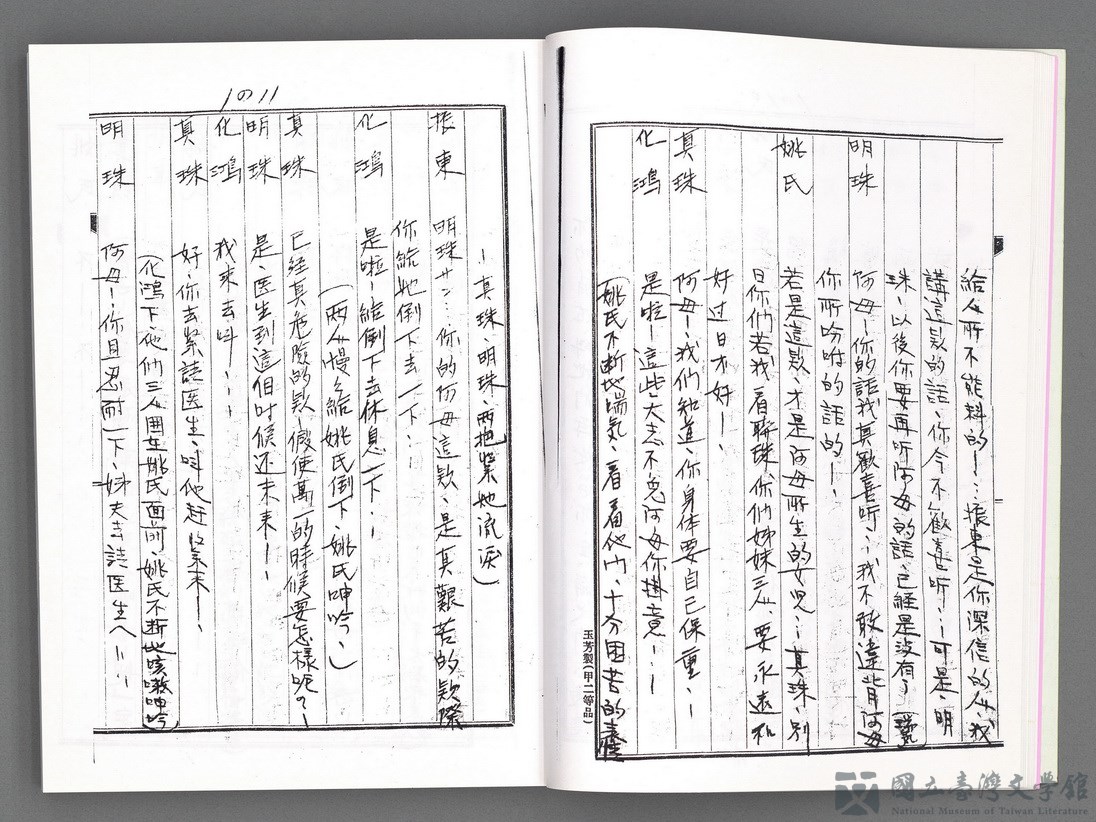 給人所不能料的！…振東是你深信的人、我
講這款的話、你今不歡喜听…！可是、明
珠、以後你要再听阿母的話、已經是没有了
明珠 阿母！你的話我真歡喜听…我不敢違背阿母
你所吩咐的話的！
姚氏 若是這款、才是阿母所生的女児…真珠、別
日你們若我、看騎珠、你們姊妹三人、要永遠和
好过日才好！、
真珠 阿母！我們知道、你身体要自己保重、！
化鴻 是啦！這些大志不免阿母你掛意！…！
(姚氏不断地喘気、看着他们、十分困苦的
玉芳製(甲二等品)
1の11
！真珠、明珠、両抱緊她流涙)
振東 明珠サン…你的阿母這款、是真艱苦的款際
你給她倒下去一下…
化鴻 是啦！給倒下去休息一下…
(両人慢々給姚氏倒下、姚氏呻吟、)
真珠 已经真危險的款！假使萬一的時候要怎樣呢？！
明珠 是、医生到這個时候还未来！！
化鴻 我来去叫、、！！
真珠 好、你去緊請医生、叫他赶緊来！、
(化鴻下、他们三人囲在姚氏面前、姚氏不断地咳嗽呻吟)
明珠 阿母！、你且忍耐一下、姊夫去請医生へ！！！
國立臺灣文學館
National Museum of Taiwan Literature